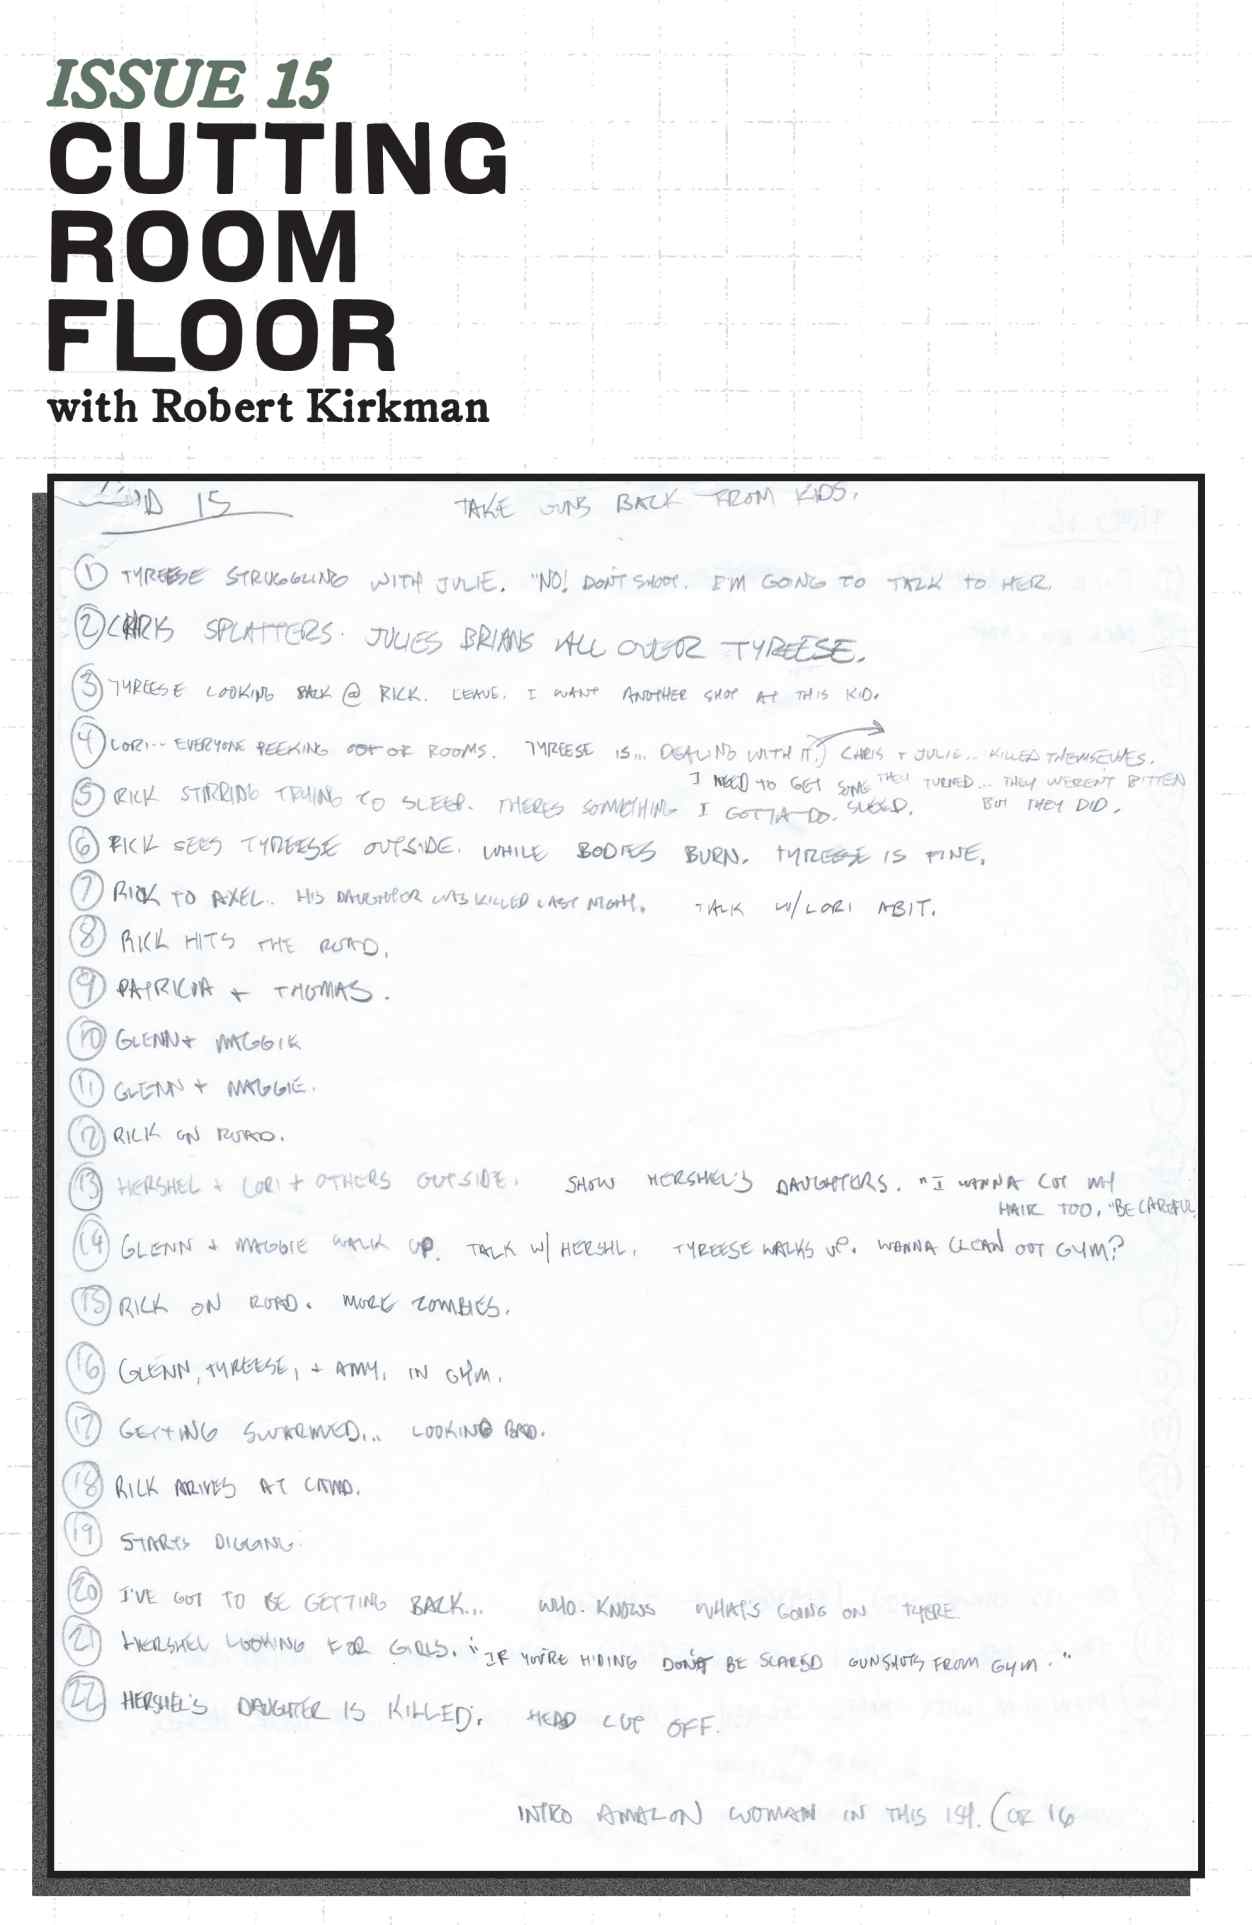 ISSUE 15
CUTTING
ROOM
FLOOR
with Robert Kirkman
15 TAKE GUNS BACK FROM KIDS.
1 TYREESE STRUGGLING WITH JULIE. "NO! DON'T SHOOT. I'M GOING TO TALK TO HER.
2 CHRIS SPLATTERS JULIES BRIANS ALL OVER TYREESE.
3 TYREESE LOOKING BACK @ RICK. LEAVE. I WANT ANOTHER SHOT AT THIS KID.
4 LORI... EVERYONE PEEKING OUT OF ROOMS. TYREESE IS... DEALING WITH IT. CHRIS + JULIE... KILLED THEMSELVES.
I NEED TO GET SOME SLEEP. THEY TURNED... THEY WEREN'T BITTEN
BUT THEY DID.
5 RICK STIRRING TRYING TO SLEEP. THERES SOMETHING I GOTTA DO.
6 RICK SEES TYREESE OUTSIDE. WHILE BODIES BURN. TYREESE IS FINE.
7 RICK TO AXEL.. HIS DAUGHTER WAS KILLED LAST NIGHT. TALK W/ LORI ABIT.
8 RICK HITS THE ROAD.
9 PATRICIA + THOMAS.
10 GLENN + MAGGIE
11 GLENN + MAGGIE.
12 RICK ON ROAD.
13 HERSHEL + LORI + OTHERS OUTSIDE. SHOW HERSHEL'S DAUGHTERS. "I WANNA CUT MY
HAIR TOO, "BE CAREFUL.
14 GLENN + MAGGIE WALK UP. TALK W/ HERSHL. TYREESE WALKS UP. WANNA CLEAN OUT GYM?
15 RICK ON ROAD. MORE ZOMBIES.
16 GLENN, TYREESE, + AMY, IN GYM.
17 GETTING SWARMED... LOOKING BAD.
18 RICK ARIVES AT CAMP.
19 STARTS DIGGING.
20 I'VE GOT TO BE GETTING BACK... WHO KNOWS WHAT'S GOING ON THERE.
21 HERSHEL LOOKING FOR GIRLS. "IF YOU'RE HIDING DON'T BE SCARED GUNSHOTS FROM GYM."
22 HERSHEL'S DAUGHTER IS KILLED. HEAD CUT OFF.
INTRO AMAZON WOMAN IN THIS ISH. (OR 16